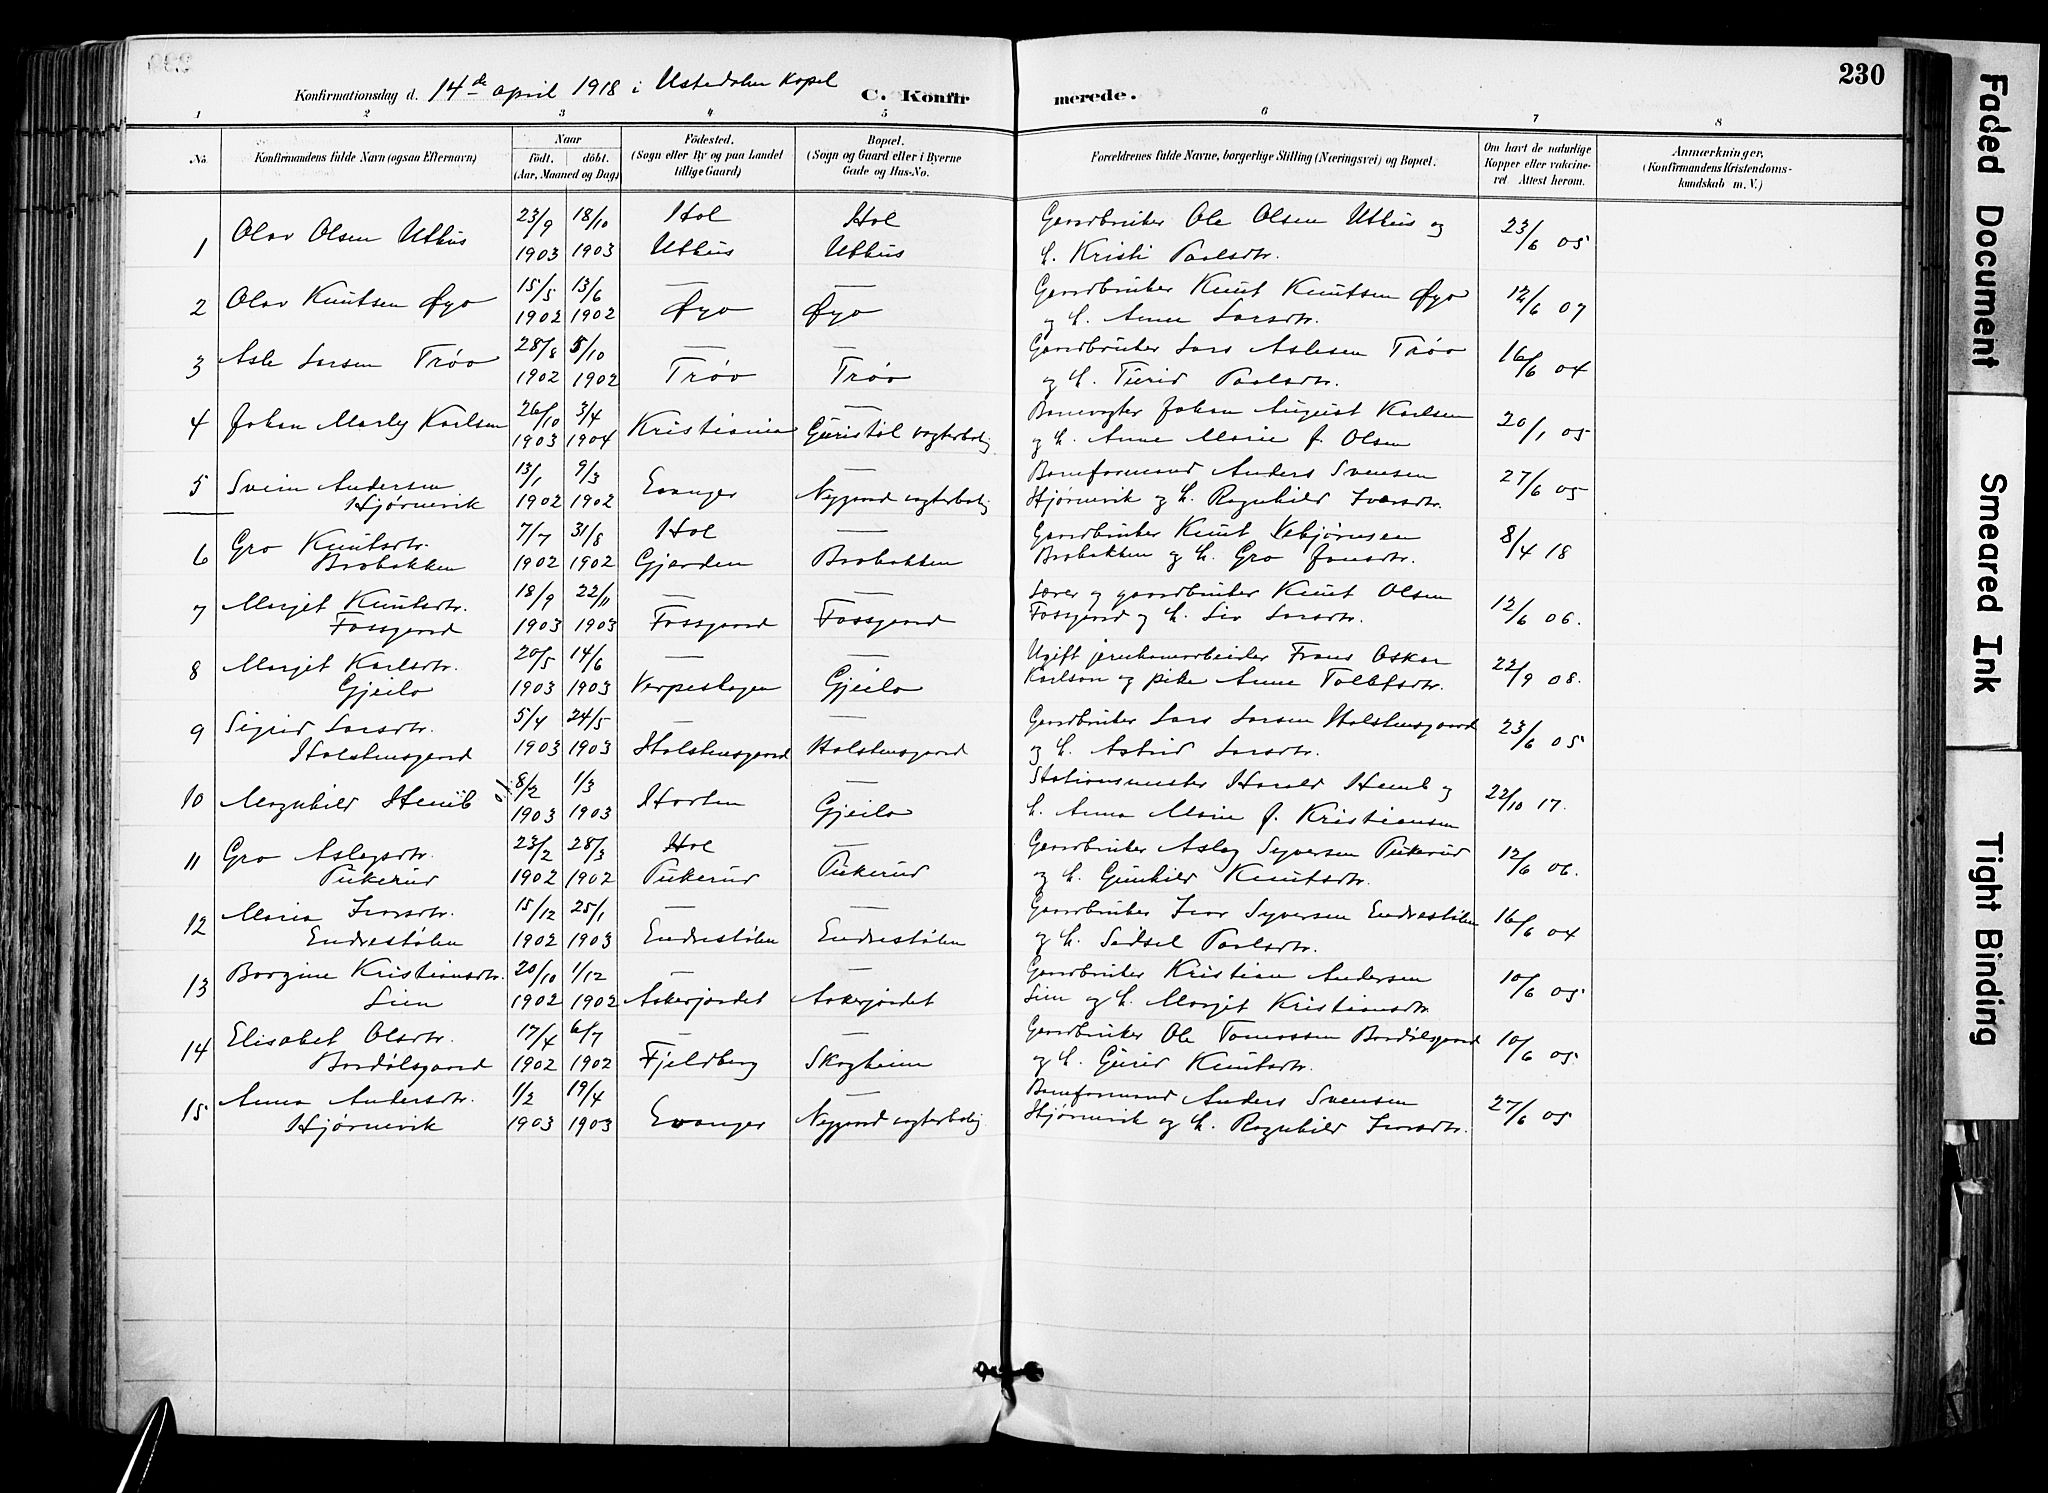 230
Konfirmationsdag d. 14de april 1918 i Ustedalen kapel
C. Konfirmerede.
1 2 3 4 5 6 7 8
No. Konfirmandens fulde Navn (ogsaa Efternavn) Naar født. døbt. (Aar, Maaned og Dag) Fødested. (Sogn eller By og paa Landet tillige Gaard) Bopæl. (Sogn og Gaard eller i Byerne Gade og Hus-No. Forældrenes fulde Navne, borgerlige Stilling (Næringsvei) og Bopæl. Om havt de naturlige Kopper eller vakcineret Attest herom. Anmærkninger, (Konfirmandens Kristendomskundskab m. V.)
1 Olav Olsen Uthus 23/9 18/10 Hol Hol Gardbruker Ole Olsen Uthus og 23/6 05
1903 1903 Uthus Uthus h. Kristi Paalsdtr.
2 Olav Knutsen Øyo 15/5 13/6 — — Gardbruker Knut Knutsen Øyo 12/6 07
1902 1902 Øyo Øyo og h. Anne Larsdtr.
3 Asle Larsen Trøo 28/8 5/10 — — Gardbruker Lars Aslesen Trøo 16/6 04
1902 1902 Trøo Trøo og h. Turid Paalsdtr.
4 Johan Karlsen 26/10 3/4 — Banevogter Johan August Karlsen 20/1 05
1903 1904 Kristiania Guristøl vogterbolig og h. Anne Marie f. Olsen
5 Svein Andersen 13/1 9/3 — Baneformand Anders Svensen 27/6 05
Hjørnevik 1902 1902 Evanger Nygard vogterbolig Hjørnevik og h. Ragnhild Iversdtr.
6 Gro Knutsdtr. 7/7 31/8 Hol — Gardbruker Knut Vebjørnsen 8/4 18
Brobakken 1902 1902 Gjerden Brobakken Brobakken og h. Gro Jonsdtr.
7 Margit Knutsdtr. 18/9 22/11 — — Lærer og gardbruker Knut Olsen 12/6 06.
Fossgard 1903 1903 Fossgard Fossgard Fossgard og h. Liv Larsdtr.
8 Margit Karlsdtr. 20/5 14/6 — — Ugift jernbanearbeider Frans Oskar 22/9 08.
Gjeilo 1903 1903 Verpeslagen Gjeilo Karlson og pike Anne Tollefsdtr.
9 Sigrid Larsdtr. 5/4 24/5 — — Gardbruker Lars Larsen Holstensgaard 23/6 05
Holstensgard 1903 1903 Holstensgard Holstensgard og h. Astrid Larsdtr.
10 Magnhild Hemb 8/2 1/3 — Stationsmester Harald Hemb og 22/10 17.
1903 1903 Horten Gjeilo h. Anna Marie f. Kristiansen
11 Gro Aslagsdtr. 23/2 28/3 Hol — Gardbruker Aslag Syversen Pukerud 12/6 06.
Pukerud 1902 1902 Pukerud Pukerud og h. Gunhild Knutsdtr.
12 Maria Ivarsdtr. 15/12 25/1 — — Gardbruker Ivar Syversen Endrestølen 16/6 04
Endrestølen 1902 1903 Endrestølen Endrestølen og h. Sidsel Paalsdtr.
13 Borgine Kristiansdtr. 20/10 1/12 — — Gardbruker Kristian Andersen 10/6 05
Lien 1902 1902 Aakerjordet Aakerjordet Lien og h. Margit Kristiansdtr.
14 Elisabet Olsdtr. 17/4 6/7 — — Gardbruker Ole Tomassen Bardølsgaard 10/6 05.
Bardølsgaard 1902 1902 Fjeldberg Skogheim og h. Gurid Knutsdtr.
15 Anna Andersdtr. 1/2 19/4 — Baneformand Anders Svensen 27/6 05
Hjørnevik 1903 1903 Evanger Nygard vogterbolig Hjørnevik og h. Ragnhild Ivarsdtr.
Faded Document
Smeared Ink
Tight Binding